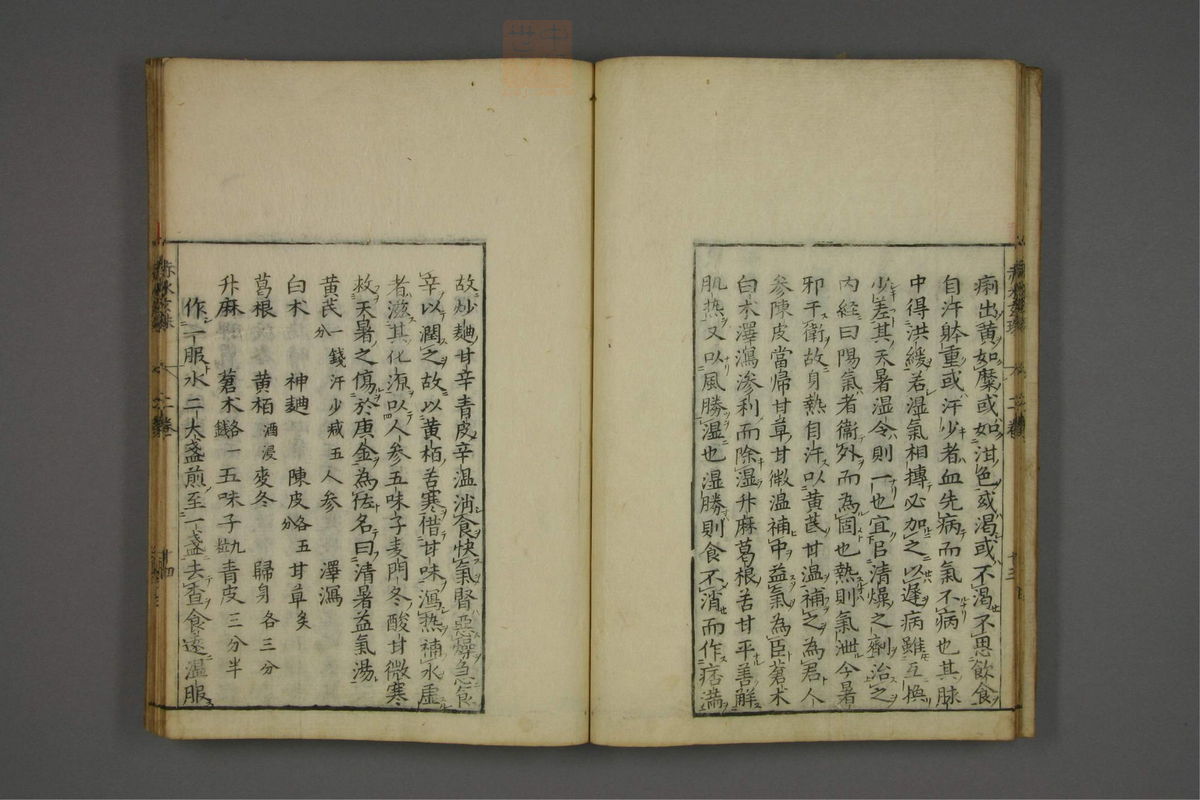 痢出黄如糜或如泔色或渇或不渇不思飲食
自汗躰重或汗少者血先病而氣不病也其脉
中得洪緩若湿氣相搏必加之以遅病雖互換
少差其天暑湿令則一也宜以清燥之剤治之
内經曰陽氣者衞外而為固也熱則氣泄今暑
邪干衛故身熱自汗以黄芪甘温補之為君人
参陳皮當帰甘草甘微温補中益氣為臣蒼术
白术澤瀉滲利而除湿升麻葛根苦甘平善解
肌热又以風勝湿也湿勝則食不消而作痞満
故炒麯甘辛青皮辛温消食快氣腎悪燥急食
辛以潤之故以黄栢苦寒借甘味瀉热補水虚
者滋其化源以人参五味子麦門冬酸甘微寒
救天暑之傷於庚金為佐名曰清暑益氣湯
黄芪一錢汗少减五分 人参 澤瀉
白术 神麯 陳皮各五分 甘草炙
葛根 黄栢酒浸 麥冬 歸身各三分
升麻 蒼术各一錢 五味子九粒 青皮二分半
作一服水二大盞煎至一盞去査食遠温服
二巻
廿三
二巻
廿四